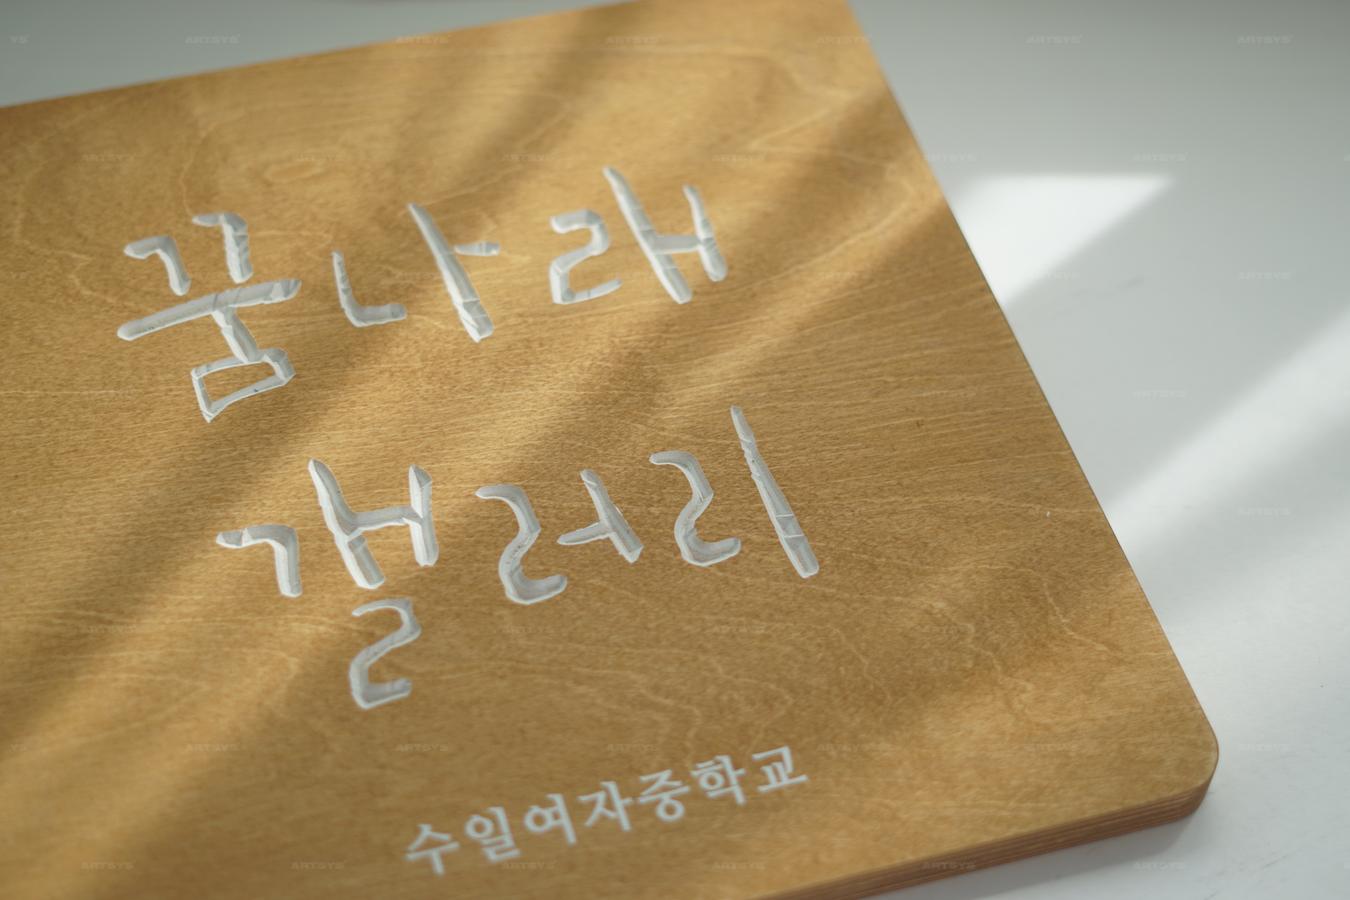 꿈나래
갤러리
수일여자중학교